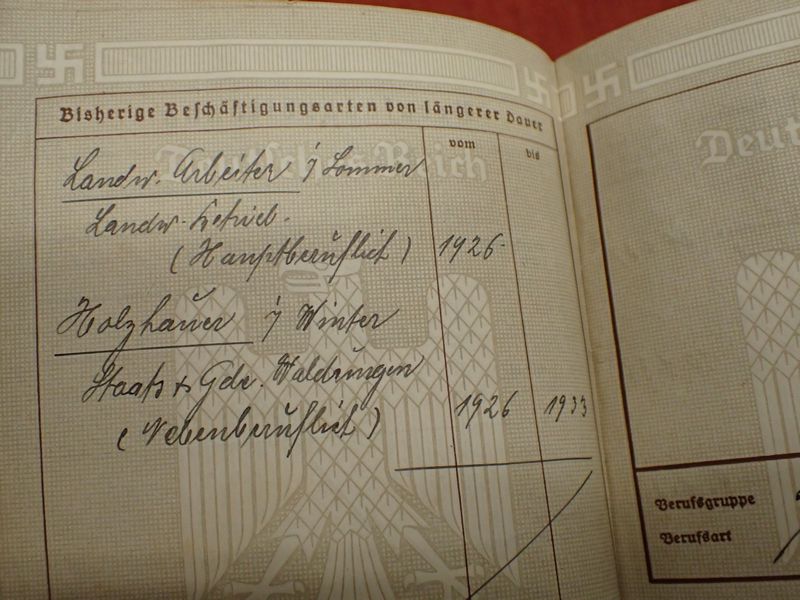 Bisherige Beschäftigungsarten von längerer Dauer
vom
bis
Landw. Arbeiter i/ Sommer
Landw. Betrieb.
(Hauptberuflich) 1926-
Holzhauer i/ Winter
Staats & Gde. Waldungen
(Nebenberuflich) 1926 1933
Deutsches Reich
Deut
Berufsgruppe
Berufsart